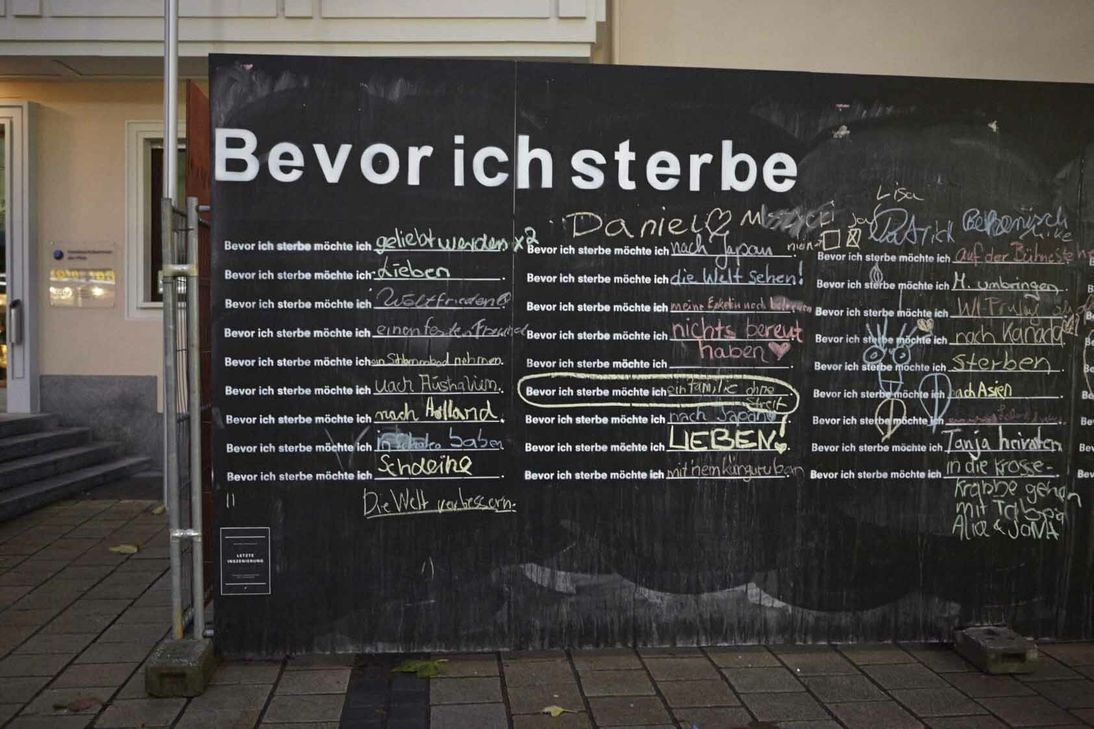 Bevor ich sterbe
Bevor ich sterbe möchte ich geliebt werden x2
Bevor ich sterbe möchte ich Lieben
Bevor ich sterbe möchte ich Weltfrieden
Bevor ich sterbe möchte ich einen festen Freund
Bevor ich sterbe möchte ich ein nehmen.
Bevor ich sterbe möchte ich nach Australien.
Bevor ich sterbe möchte ich nach Holland.
Bevor ich sterbe möchte ich baben
Bevor ich sterbe möchte ich Scheine
Die Welt verbessern.
LETZTE
INSZENIERUNG
Daniel
Bevor ich sterbe möchte ich nach Japan
Bevor ich sterbe möchte ich die Welt sehen!
Bevor ich sterbe möchte ich meine Enkelin noch
Bevor ich sterbe möchte ich nichts bereut
haben
Bevor ich sterbe möchte ich
Bevor ich sterbe möchte ich ein familie ohne
Streit
Bevor ich sterbe möchte ich nach Japan
Bevor ich sterbe möchte ich LIEBEN!
Bevor ich sterbe möchte ich mit nem
Lisa
Patrick
Bevor ich sterbe möchte ich auf der Bühne
Bevor ich sterbe möchte ich M. umbringen
Bevor ich sterbe möchte ich
Bevor ich sterbe möchte ich nach Kanada
Bevor ich sterbe möchte ich sterben
Bevor ich sterbe möchte ich nach Asien
Bevor ich sterbe möchte
Bevor ich sterbe möchte ich Tanja heiraten
Bevor ich sterbe möchte ich in die Krosse-
Krabbe gehen
mit
Alia & JONA